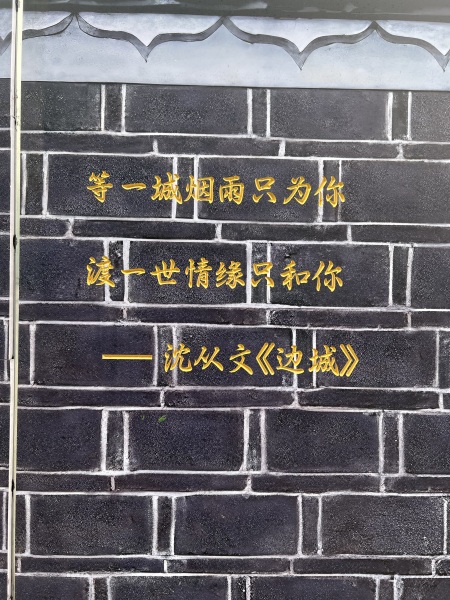 等一城烟雨只为你
渡一世情缘只和你
——沈从文《边城》